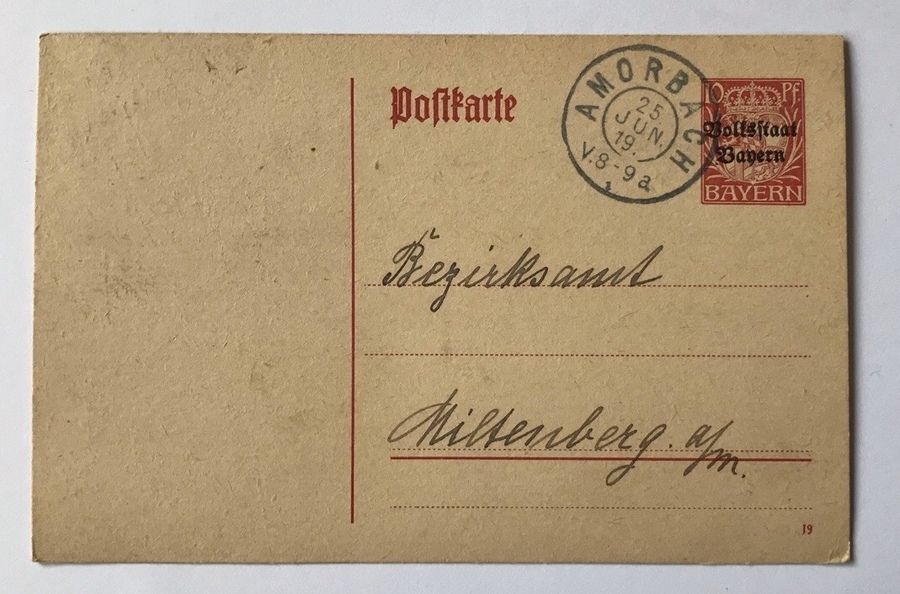 Postkarte
AMORBACH
25.
JUN.
19.
V.8-9a
10 Pf
Volksstaat
Bayern
BAYERN
Bezirksamt
Miltenberg. a/m.
19